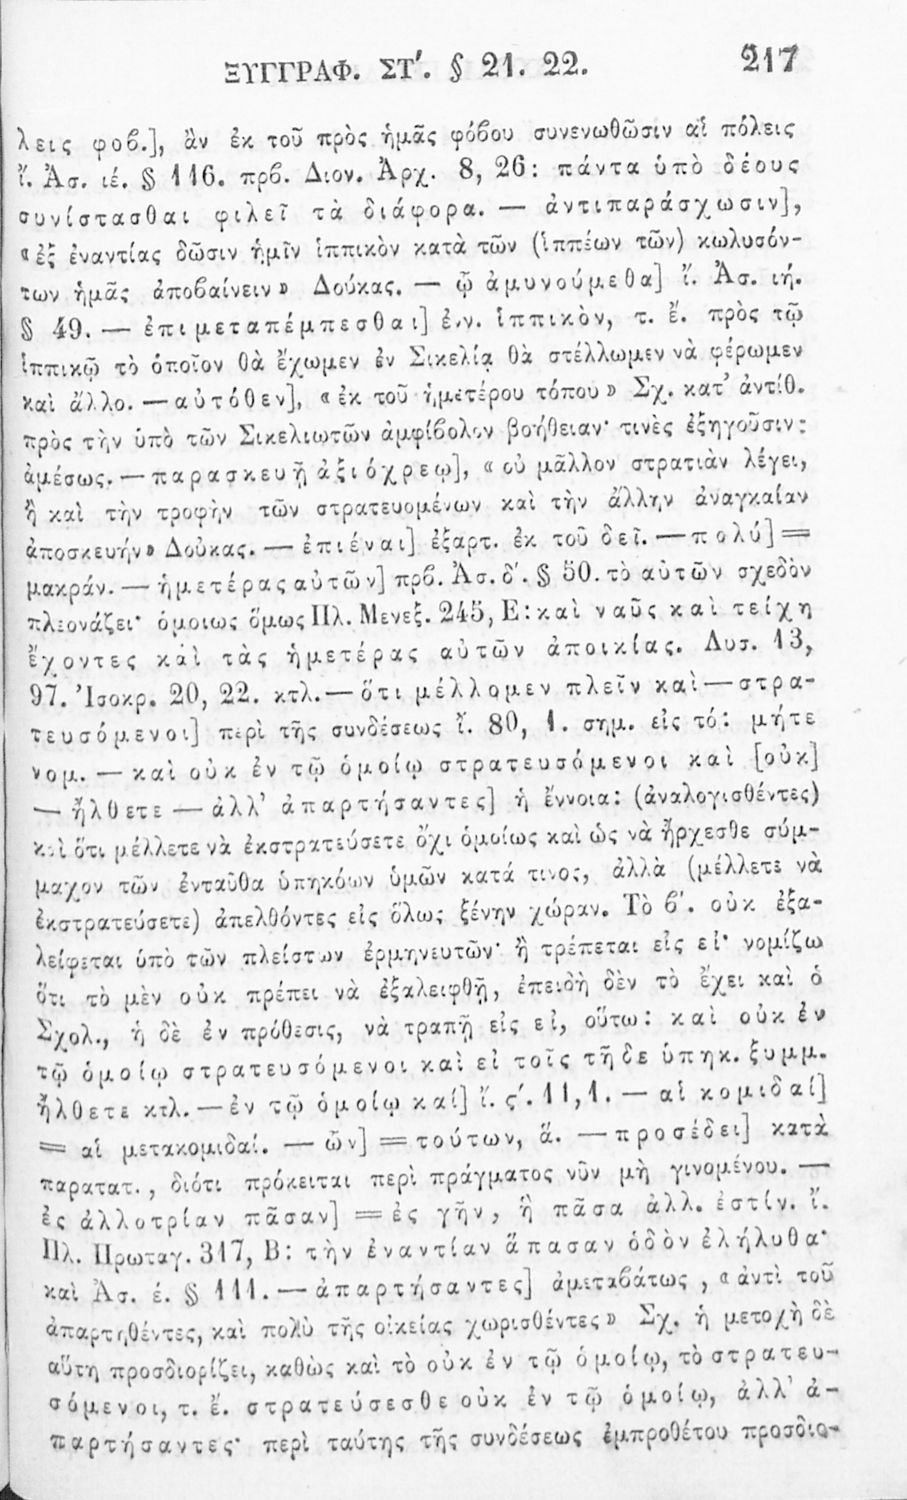 ΞΥΓΓΡΑΦ. ΣΤ΄. § 21. 22. 217
λεις φοβ.], ἂν ἐκ τοῦ πρὸς ἡμᾶς φόβου συνενωθῶσιν αἱ πόλεις
ἴ. Ἀσ. ιέ. § 116. πρβ. Διον. Ἀρχ. 8, 26: πάντα ὑπὸ δέους
συνίστασθαι φιλεῖ τὰ διάφορα. — ἀντιπαράσχωσιν],
«ἐξ ἐναντίας δῶσιν ἡμῖν ἱππικὸν κατὰ τῶν (ἱππέων τῶν) κωλυσόν-
των ἡμᾶς ἀποβαίνειν» Δούκας. — ᾧ ἀμυνούμεθα] ἴ. Ἀσ. ιή.
§ 49. — ἐπιμεταπέμπεσθαι] ἐ.ν. ἱππικὸν, τ. ἔ. πρὸς τῷ
ἱππικῷ τὸ ὁποῖον θὰ ἔχωμεν ἐν Σικελίᾳ θὰ στέλλωμεν νὰ φέρωμεν
καὶ ἄλλο. — αὐτόθεν], «ἐκ τοῦ ἡμετέρου τόπου» Σχ. κατ' ἀντίθ.
πρὸς τὴν ὑπὸ τῶν Σικελιωτῶν ἀμφίβολον βοήθειαν· τινὲς ἐξηγοῦσιν:
ἀμέσως. — παρασκευῇ ἀξιόχρεῳ], «οὐ μᾶλλον στρατιὰν λέγει,
ἢ καὶ τὴν τροφὴν τῶν στρατευομένων καὶ τὴν ἄλλην ἀναγκαίαν
ἀποσκευήν» Δούκας. — ἐπιέναι] ἐξαρτ. ἐκ τοῦ δεῖ. — πολύ] =
μακράν. — ἡμετέρας αὐτῶν] πρβ. Ἀσ. δ΄. § 50. τὸ αὐτῶν σχεδὸν
πλεονάζει· ὁμοιως ὅμως Πλ. Μενεξ. 245, Ε: καὶ ναῦς καὶ τείχη
ἔχοντες καὶ τὰς ἡμετέρας αὐτῶν ἀποικίας. Λυσ. 13,
97. Ἰσοκρ. 20, 22. κτλ. — ὅτι μέλλομεν πλεῖν καὶ — στρα-
τευσόμενοι] περὶ τῆς συνδέσεως ἴ. 80, 1. σημ. εἰς τό: μήτε
νομ. — καὶ οὐκ ἐν τῷ ὁμοίῳ στρατευσόμενοι καὶ [οὐκ]
— ἤλθετε — ἀλλ' ἀπαρτήσαντες] ἡ ἔννοια: (ἀναλογισθέντες)
καὶ ὅτι μέλλετε νὰ ἐκστρατεύσετε ὄχι ὁμοίως καὶ ὡς νὰ ἤρχεσθε σύμ-
μαχοι τῶν ἐνταῦθα ὑπηκόων ὑμῶν κατά τινος, ἀλλὰ (μέλλετε νὰ
ἐκστρατεύσετε) ἀπελθόντες εἰς ὅλως ξένην χώραν. Τὸ β΄. οὐκ ἐξα-
λείφεται ὑπὸ τῶν πλείστων ἑρμηνευτῶν· ἢ τρέπεται εἰς εἰ· νομίζω
ὅτι τὸ μὲν οὐκ πρέπει νὰ ἐξαλειφθῇ, ἐπειδὴ δὲν τὸ ἔχει καὶ ὁ
Σχολ., ἡ δὲ ἐν πρόθεσις, νὰ τραπῇ εἰς εἰ, οὕτω: καὶ οὐκ ἐν
τῷ ὁμοίῳ στρατευσόμενοι καὶ εἰ τοῖς τῇδε ὑπηκ. ξυμμ.
ἤλθετε κτλ. — ἐν τῷ ὁμοίῳ καί] ἴ. ς΄. 11,1. — αἱ κομιδαί]
= αἱ μετακομιδαί. — ὧν] = τούτων, ἅ. — προσέδει] κατὰ
παρατατ., διότι πρόκειται περὶ πράγματος νῦν μὴ γινομένου. —
ἐς ἀλλοτρίαν πᾶσαν] = ἐς γῆν, ἣ πᾶσα ἀλλ. ἐστίν. ἴ.
Πλ. Πρωταγ. 317, Β: τὴν ἐναντίαν ἅπασαν ὁδὸν ἐλήλυθα·
καὶ Ἀσ. έ. § 111. — ἀπαρτήσαντες] ἀμεταβάτως, «ἀντὶ τοῦ
ἀπαρτηθέντες, καὶ πολὺ τῆς οἰκείας χωρισθέντες» Σχ. ἡ μετοχὴ δὲ
αὕτη προσδιορίζει, καθὼς καὶ τὸ οὐκ ἐν τῷ ὁμοίῳ, τὸ στρατευ-
σόμενοι, τ. ἔ. στρατεύσεσθε οὐκ ἐν τῷ ὁμοίῳ, ἀλλ' ἀ-
παρτήσαντες· περὶ ταύτης τῆς συνδέσεως ἐμπροθέτου προσδιο-